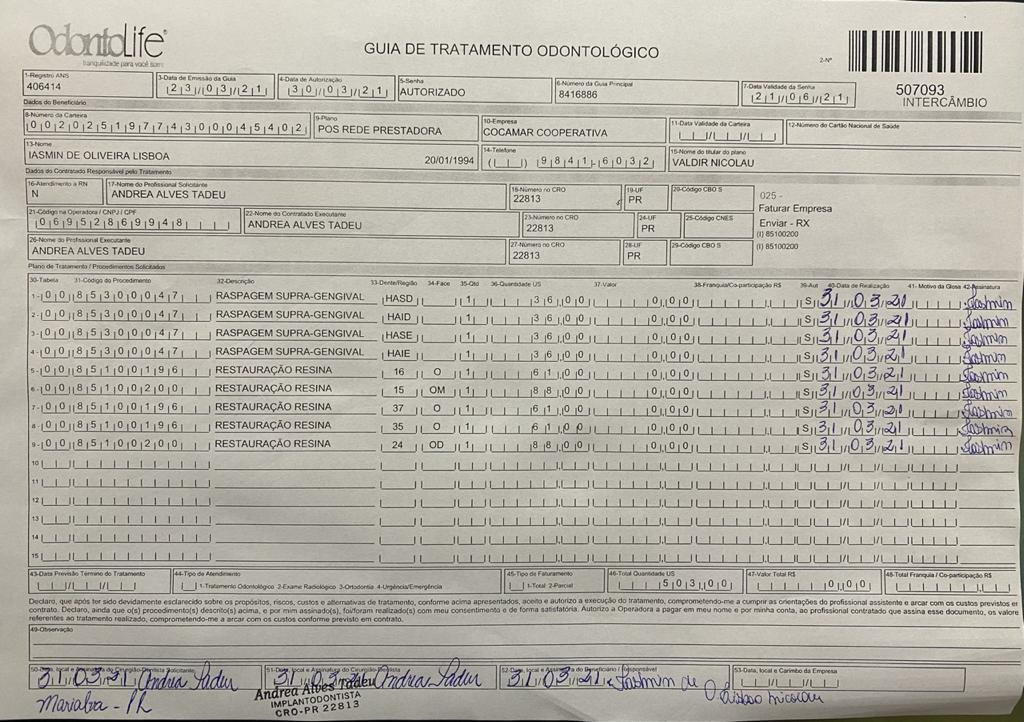 OdontoLife
tranquilidade para você sorrir
GUIA DE TRATAMENTO ODONTOLÓGICO
2-Nº
507093
INTERCÂMBIO
1-Registro ANS
406414
3-Data de Emissão da Guia
23/03/21
4-Data de Autorização
30/03/21
5-Senha
AUTORIZADO
6-Número da Guia Principal
8416886
7-Data Validade da Senha
21/06/21
Dados do Beneficiário
8-Número da Carteira
0202519774300045402
9-Plano
POS REDE PRESTADORA
10-Empresa
COCAMAR COOPERATIVA
11-Data Validade da Carteira
12-Número do Cartão Nacional de Saúde
13-Nome
IASMIN DE OLIVEIRA LISBOA 20/01/1994
14-Telefone
( ) 9841-6032
15-Nome do titular do plano
VALDIR NICOLAU
Dados do Contratado Responsável pelo Tratamento
16-Atendimento a RN
N
17-Nome do Profissional Solicitante
ANDREA ALVES TADEU
18-Número no CRO
22813
19-UF
PR
20-Código CBO S
025 -
Faturar Empresa
Enviar - RX
(I) 85100200
(I) 85100200
21-Código na Operadora / CNPJ / CPF
06952869948
22-Nome do Contratado Executante
ANDREA ALVES TADEU
23-Número no CRO
22813
24-UF
PR
25-Código CNES
26-Nome do Profissional Executante
ANDREA ALVES TADEU
27-Número no CRO
22813
28-UF
PR
29-Código CBO S
Plano de Tratamento / Procedimentos Solicitados
30-Tabela 31-Código do Procedimento 32-Descrição 33-Dente/Região 34-Face 35-Qtd 36-Quantidade US 37-Valor 38-Franquia/Co-participação R$ 39-Aut 40-Data de Realização 41- Motivo da Glosa 42-Assinatura
1- 00 85300047 RASPAGEM SUPRA-GENGIVAL HASD 1 36,00 0,00 S 31/03/21 Iasmin
2- 00 85300047 RASPAGEM SUPRA-GENGIVAL HAID 1 36,00 0,00 S 31/03/21 Iasmin
3- 00 85300047 RASPAGEM SUPRA-GENGIVAL HASE 1 36,00 0,00 S 31/03/21 Iasmin
4- 00 85300047 RASPAGEM SUPRA-GENGIVAL HAIE 1 36,00 0,00 S 31/03/21 Iasmin
5- 00 85100196 RESTAURAÇÃO RESINA 16 O 1 61,00 0,00 S 31/03/21 Iasmin
6- 00 85100200 RESTAURAÇÃO RESINA 15 OM 1 88,00 0,00 S 31/03/21 Iasmin
7- 00 85100196 RESTAURAÇÃO RESINA 37 O 1 61,00 0,00 S 31/03/21 Iasmin
8- 00 85100196 RESTAURAÇÃO RESINA 35 O 1 61,00 0,00 S 31/03/21 Iasmin
9- 00 85100200 RESTAURAÇÃO RESINA 24 OD 1 88,00 0,00 S 31/03/21 Iasmin
10
11
12
13
14
15
43-Data Previsão Término do Tratamento
44-Tipo de Atendimento
1-Tratamento Odontológico 2-Exame Radiológico 3-Ortodontia 4-Urgência/Emergência
45-Tipo de Faturamento
1-Total 2-Parcial
46-Total Quantidade US
503,00
47-Valor Total R$
0,00
48-Total Franquia / Co-participação R$
Declaro, que após ter sido devidamente esclarecido sobre os propósitos, riscos, custos e alternativas de tratamento, conforme acima apresentados, aceito e autorizo a execução do tratamento, comprometendo-me a cumprir as orientações do profissional assistente e arcar com os custos previstos em
contrato. Declaro, ainda que o(s) procedimento(s) descrito(s) acima, e por mim assinado(s), foi/foram realizado(s) com meu consentimento e de forma satisfatória. Autorizo a Operadora a pagar em meu nome e por minha conta, ao profissional contratado que assina esse documento, os valores
referentes ao tratamento realizado, comprometendo-me a arcar com os custos conforme previsto em contrato.
49-Observação
50-Data, local e Assinatura do Cirurgião-Dentista Solicitante
31.03.21 Andrea Tadeu
Marialva - PR
51-Data, local e Assinatura do Cirurgião-Dentista
31.03.21 Andrea Tadeu
Andrea Alves Tadeu
IMPLANTODONTISTA
CRO-PR 22813
52-Data, local e Assinatura do Beneficiário / Responsável
31.03.21 Iasmin de
O Lisboa Nicolau
53-Data, local e Carimbo da Empresa